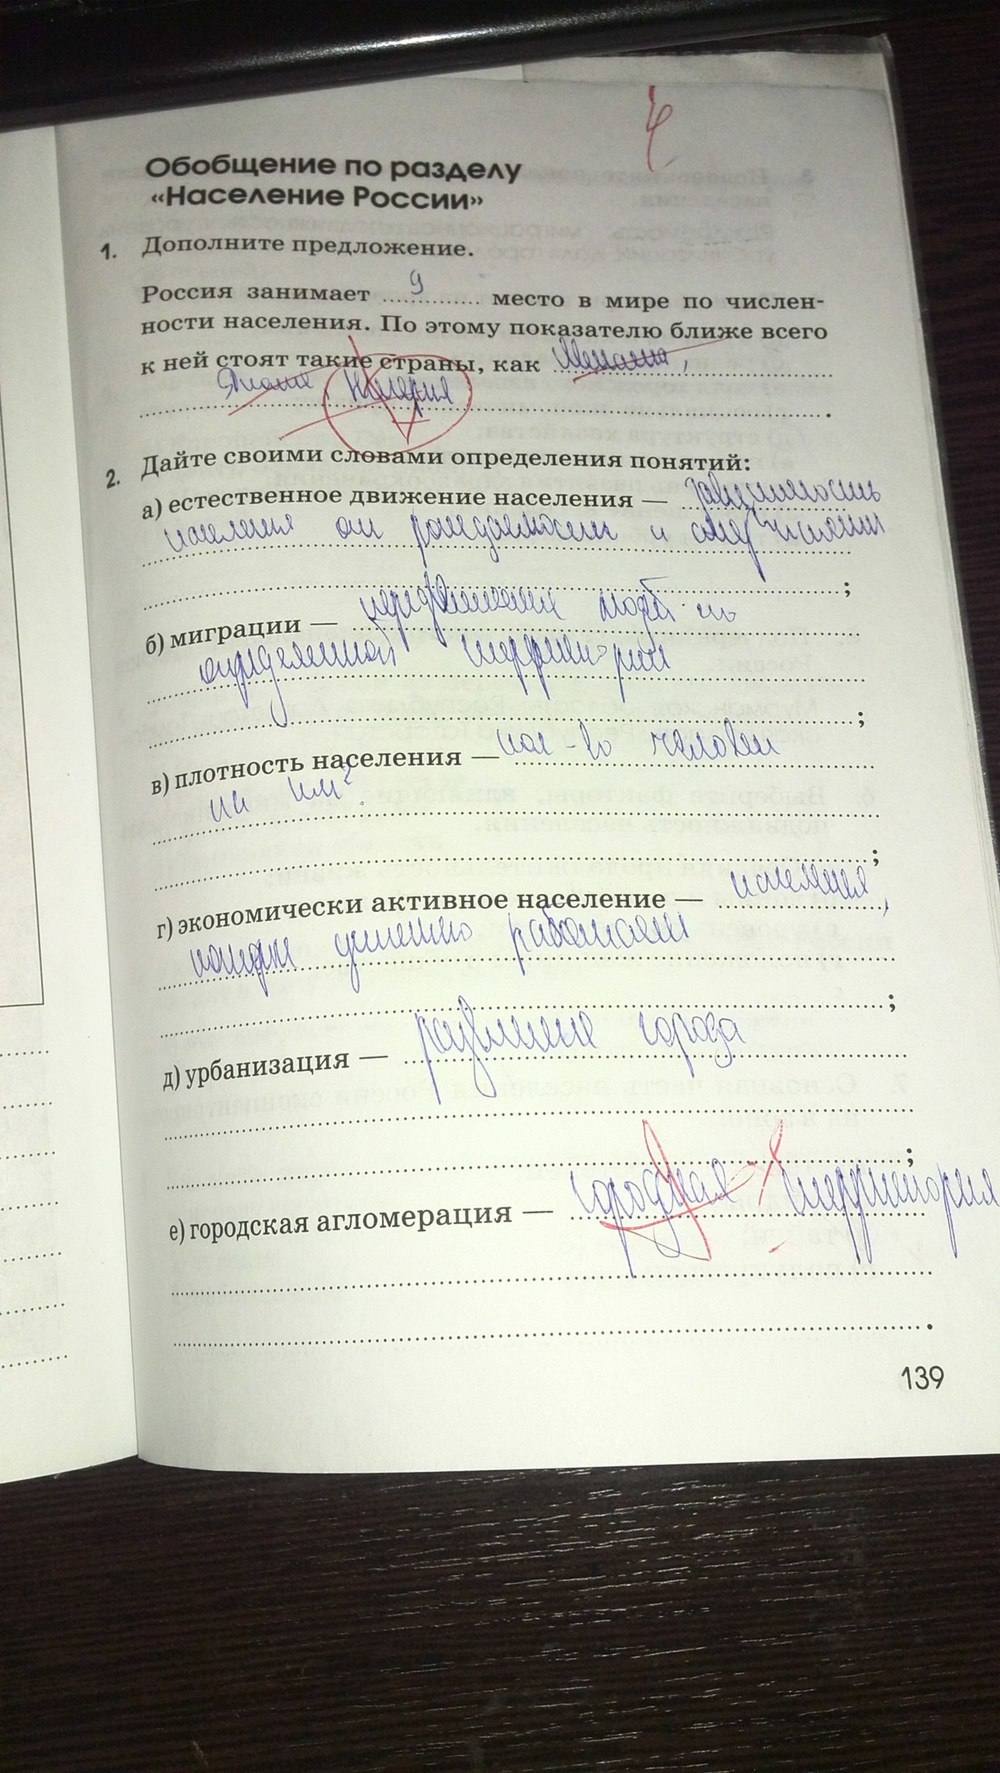 4
Обобщение по разделу
«Население России»
1. Дополните предложение.
Россия занимает 9 место в мире по числен-
ности населения. По этому показателю ближе всего
к ней стоят такие страны, как
Япония, Нигерия
2. Дайте своими словами определения понятий:
а) естественное движение населения — зависимость
населения от рождаемости и смертности
;
б) миграции — передвижения людей по
определенной территории
;
в) плотность населения — кол-во человек
на км².
;
г) экономически активное население — население,
работает
;
д) урбанизация — развитие города
;
е) городская агломерация — городская территория
.
139